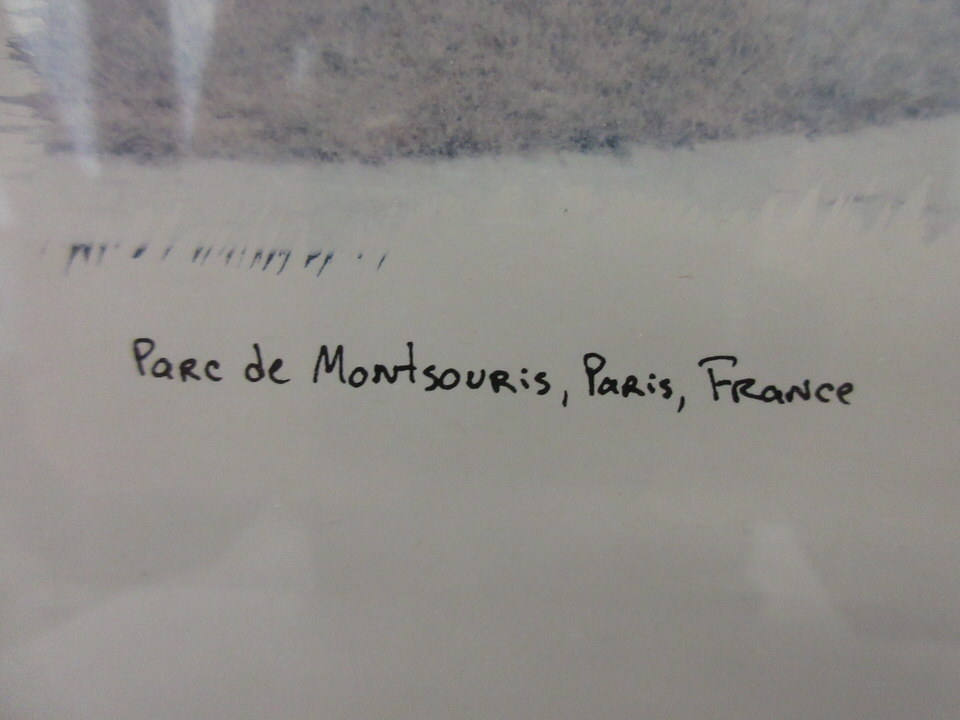 Parc de Montsouris, Paris, France